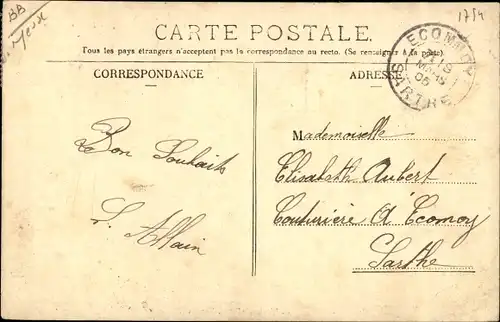 BB
1754
CARTE POSTALE
Tous les pays étrangers n'acceptent pas la correspondance au recto. (Se renseigner à la poste)
ECOMMOY
19
MARS
05
SARTHE
CORRESPONDANCE
ADRESSE
Bon Souhait
S. Allain
Mademoiselle
Elisabeth Aubert
Couturière A Ecomoy
Sarthe